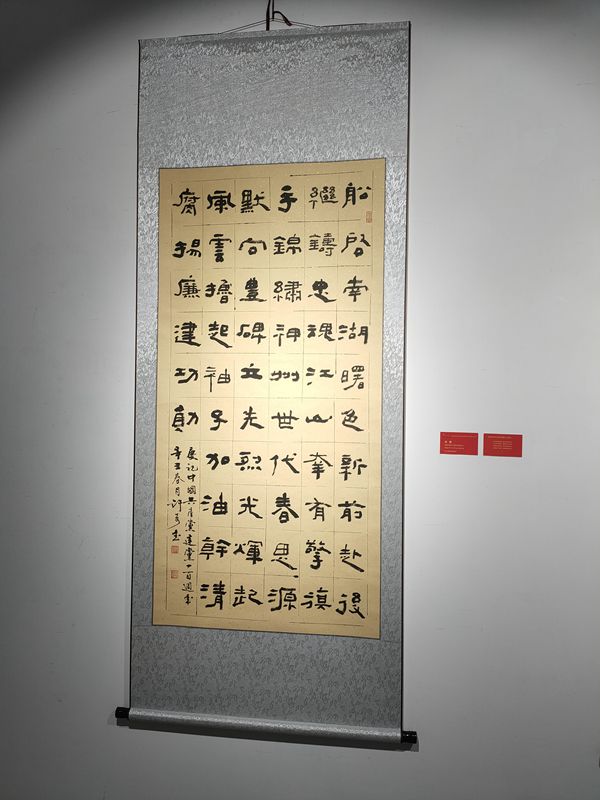 船启南湖曙色新前赴後
繼鑄忠魂江山幸有擎旗
手錦繡神州世代春思源
默向豐碑立先烈光輝起
風雲擼起袖子加油幹清
腐揚廉建功勛
慶祝中國共产黨建黨一百週年
辛丑春月許書